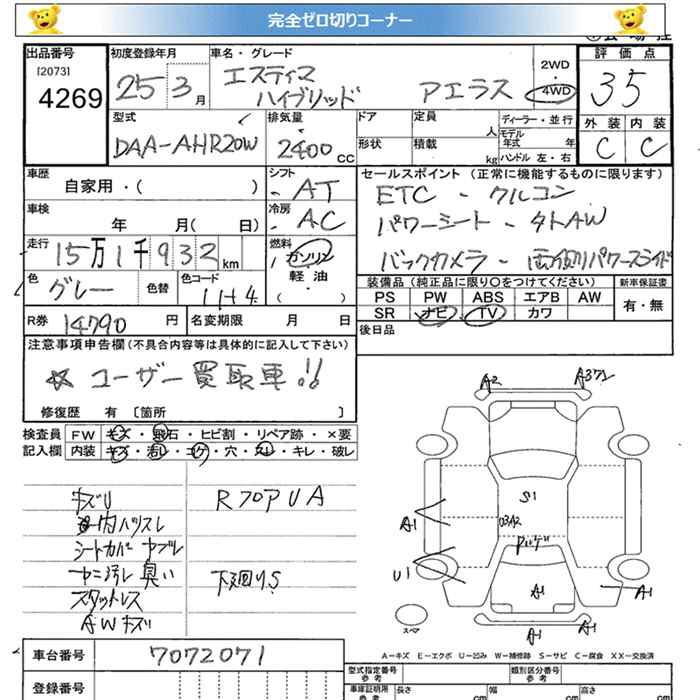 完全ゼロ切りコーナー
出品番号
[2073]
4269
初度登録年月
25 3月
車名・グレード
エスティマ
ハイブリッド アエラス
2WD
・
4WD
評価点
3.5
外装 内装
C C
型式
DAA-AHR20W
排気量
2400 CC
ドア
定員 人
形状
積載 kg
ディーラー・並行
モデル年式 年
ハンドル 左・右
車歴
自家用・( )
シフト
AT
車検
年 月( 日)
冷房
AC
走行
15万1千932 km
燃料
ガソリン
軽油
( ・ )
色
グレー
色替
色コード
1H4
R券 14790 円
名変期限 月 日
セールスポイント (正常に機能するものに限ります)
ETC - クルコン
パワーシート - タトAW
バックカメラ - 両側パワースライド
装備品 (純正品に限り○をつけてください)
PS PW ABS エアB AW
SR ナビ TV カワ
新車保証書
有・無
後日品
注意事項申告欄 (不具合内容等は具体的に記入して下さい)
☆ ユーザー買取車!!
修復歴 有 〔箇所 〕
検査員 FW キズ・飛石・ヒビ割・リペア跡・×要
記入欄 内装 キズ・汚レ・コゲ・穴・スレ・キレ・破レ
キズU
内ハリスレ
シートカバー ヤブレ
ヤニ汚レ 臭い
スタットレス
AWキズ
RフロアUA
下廻りS
A2
A3
S1
U3A2
A1
U1
A1
A1
A1
A1
スペア
A-キズ E-エクボ U-凹み W-補修跡 S-サビ C-腐食 XX-交換済
車台番号 7072071
登録番号
型式指定番号
参考
類別区分番号
参考
車庫証明用
参考
長さ cm
幅 cm
高さ cm